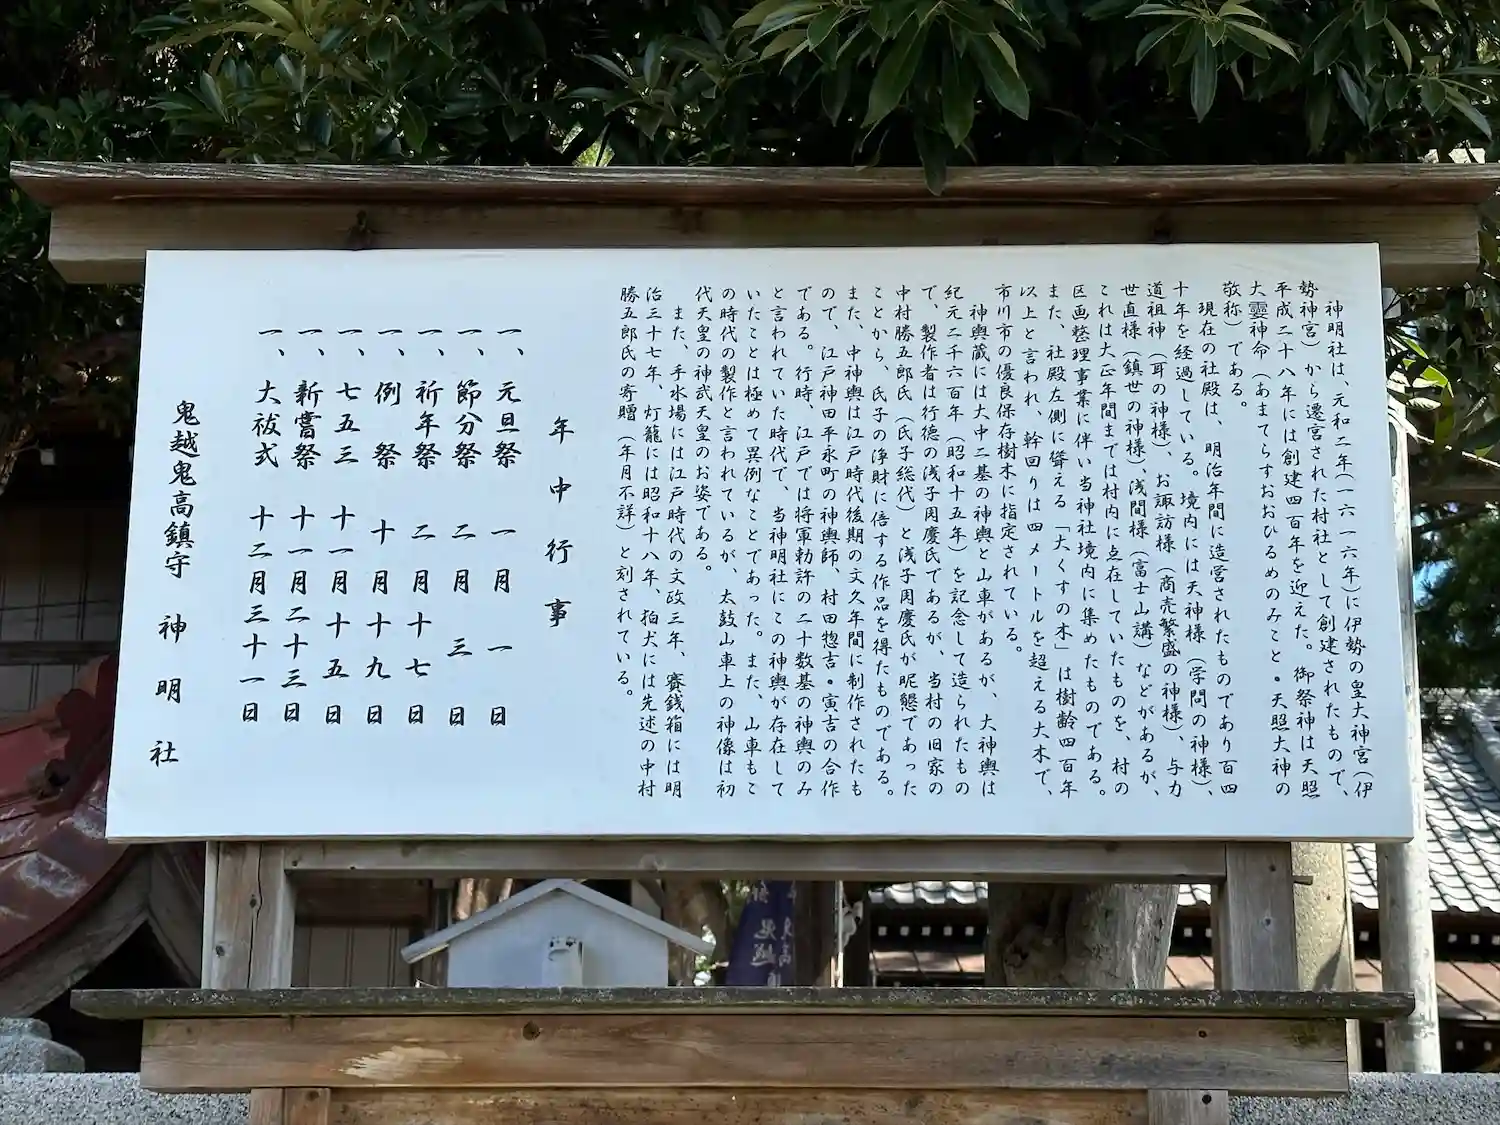 神明社は、元和二年(一六一六年)に伊勢の皇大神宮(伊
勢神宮)から遷宮された村社として創建されたもので、
平成二十八年には創建四百年を迎えた。御祭神は天照
大靈神命(あまてらすおおひるめのみこと・天照大神の
敬称)である。
現在の社殿は、明治年間に造営されたものであり百四
十年を経過している。境内には天神様(学問の神様)、
道祖神(耳の神様)、お諏訪様(商売繁盛の神様)、与力
世直様(鎮世の神様)、浅間様(富士山講)などがあるが、
これは大正年間までは村内に点在していたものを、村の
区画整理事業に伴い当神社境内に集めたものである。
また、社殿左側に聳える「大くすの木」は樹齢四百年
以上と言われ、幹回りは四メートルを超える大木で、
市川市の優良保存樹木に指定されている。
神輿蔵には大中二基の神輿と山車があるが、大神輿は
紀元二千六百年(昭和十五年)を記念して造られたもの
で、製作者は行徳の浅子周慶氏であるが、当村の旧家の
中村勝五郎氏(氏子総代)と浅子周慶氏が昵懇であった
ことから、氏子の浄財に倍する作品を得たものである。
また、中神輿は江戸時代後期の文久年間に制作されたも
ので、江戸神田平永町の神輿師、村田惣吉・寅吉の合作
である。行時、江戸では将軍勅許の二十数基の神輿のみ
と言われていた時代で、当神明社にこの神輿が存在して
いたことは極めて異例なことであった。また、山車もこ
の時代の製作と言われているが、太鼓山車上の神像は初
代天皇の神武天皇のお姿である。
また、手水場には江戸時代の文政三年、賽銭箱には明
治三十七年、灯籠には昭和十八年、狛犬には先述の中村
勝五郎氏の寄贈(年月不詳)と刻されている。
年中行事
一、元旦祭 一月 一日
一、節分祭 二月 三日
一、祈年祭 二月十七日
一、例祭 十月十九日
一、七五三 十一月十五日
一、新嘗祭 十一月二十三日
一、大祓式 十二月三十一日
鬼越鬼高鎮守 神明社